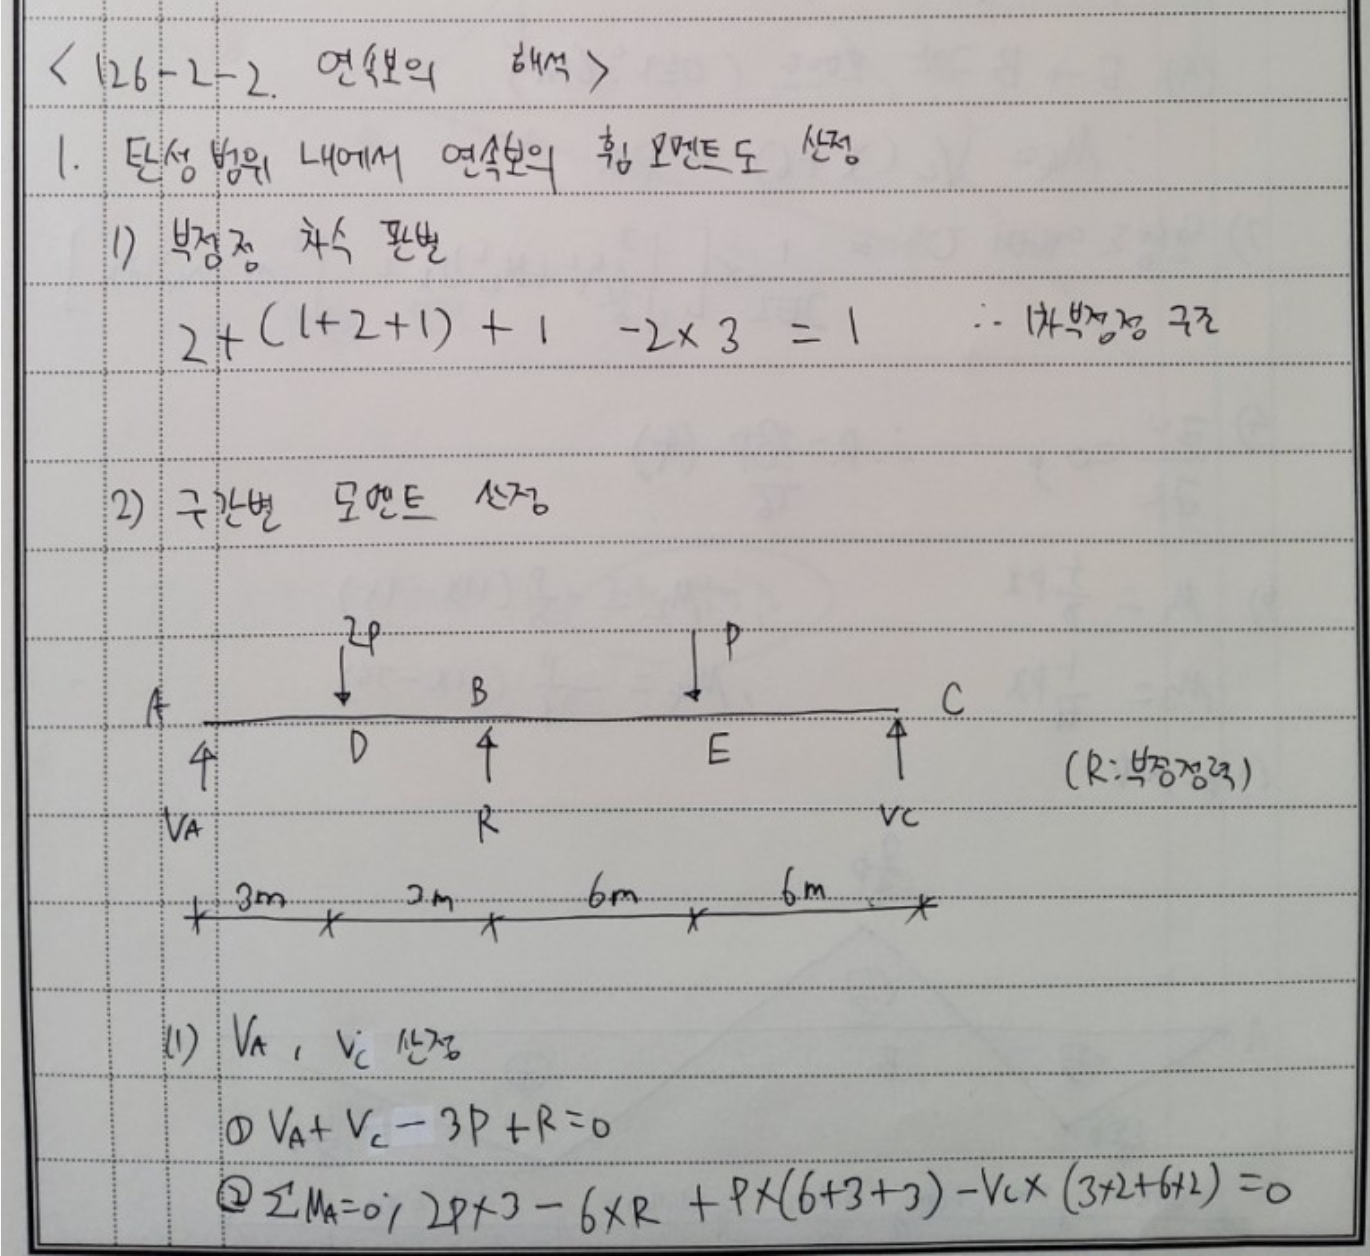 < 126-2-2. 연속보의 해석 >
1. 탄성 범위 내에서 연속보의 휨 모멘트도 산정
1) 부정정 차수 판별
2+(1+2+1)+1 -2×3 = 1 ∴ 1차부정정 구조
2) 구간별 모멘트 산정
2P P
A B C
D E
(R:부정정력)
VA R VC
3m 3m 6m 6m
(1) VA, VC 산정
① VA+VC-3P+R=0
② ΣMA=0; 2P×3-6×R+P×(6+3+3)-VC×(3×2+6×2)=0